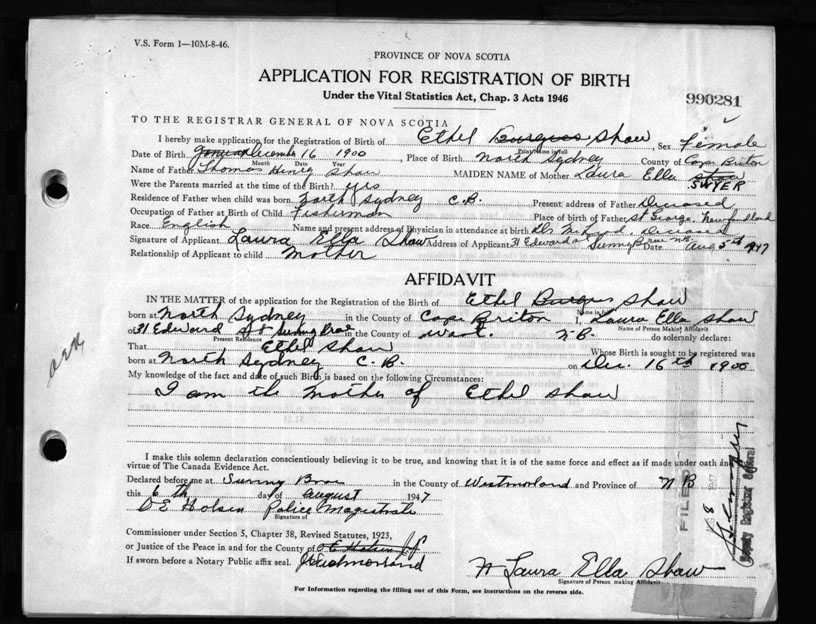 V.S. Form 1—10M-8-46.
PROVINCE OF NOVA SCOTIA
APPLICATION FOR REGISTRATION OF BIRTH
Under the Vital Statistics Act, Chap. 3 Acts 1946
990281
TO THE REGISTRAR GENERAL OF NOVA SCOTIA
I hereby make application for the Registration of Birth of Ethel Burgess Shaw, Sex Female
Print name in full
Date of Birth December 16 1900, Place of Birth North Sydney County of Cape Briton
Month Date Year
Name of Father Thomas Henry Shaw MAIDEN NAME of Mother Laura Ella Shaw SWYER
Were the Parents married at the time of the Birth? yes
Residence of Father when child was born North Sydney C.B. Present address of Father Deceased
Occupation of Father at Birth of Child Fisherman Place of birth of Father St George, Newfoundland
Race English Name and present address of Physician in attendance at birth Dr. deceased
Signature of Applicant Laura Ella Shaw Address of Applicant 31 Edward St Sunny Brae NB Date Aug 5th 1947
Relationship of Applicant to child Mother
AFFIDAVIT
IN THE MATTER of the application for the Registration of Birth of Ethel Burgess Shaw
Name in full
born at North Sydney in the County of Cape Briton I, Laura Ella Shaw
Name of Person Making Affidavit
of 31 Edward St Sunny Brae in the County of West. N.B. do solemnly declare:
Present Residence
That Ethel Shaw Whose Birth is sought to be registered was
born at North Sydney C.B. on Dec. 16th 1900
My knowledge of the fact and date of such Birth is based on the following Circumstances:
I am the Mother of Ethel Shaw
I make this solemn declaration conscientiously believing it to be true, and knowing that it is of the same force and effect as if made under oath and
virtue of The Canada Evidence Act.
Declared before me at Sunny Brae in the County of Westmorland and Province of N B
this 6th day of August 1947
Police Magistrate
Signature of
Commissioner under Section 5, Chapter 38, Revised Statutes, 1923,
or Justice of the Peace in and for the County of
If sworn before a Notary Public affix seal. Westmorland
Laura Ella Shaw
Signature of Person making Affidavit
For Information regarding the filling out of this Form, see instructions on the reverse side.
FILED
Deputy Registrar General